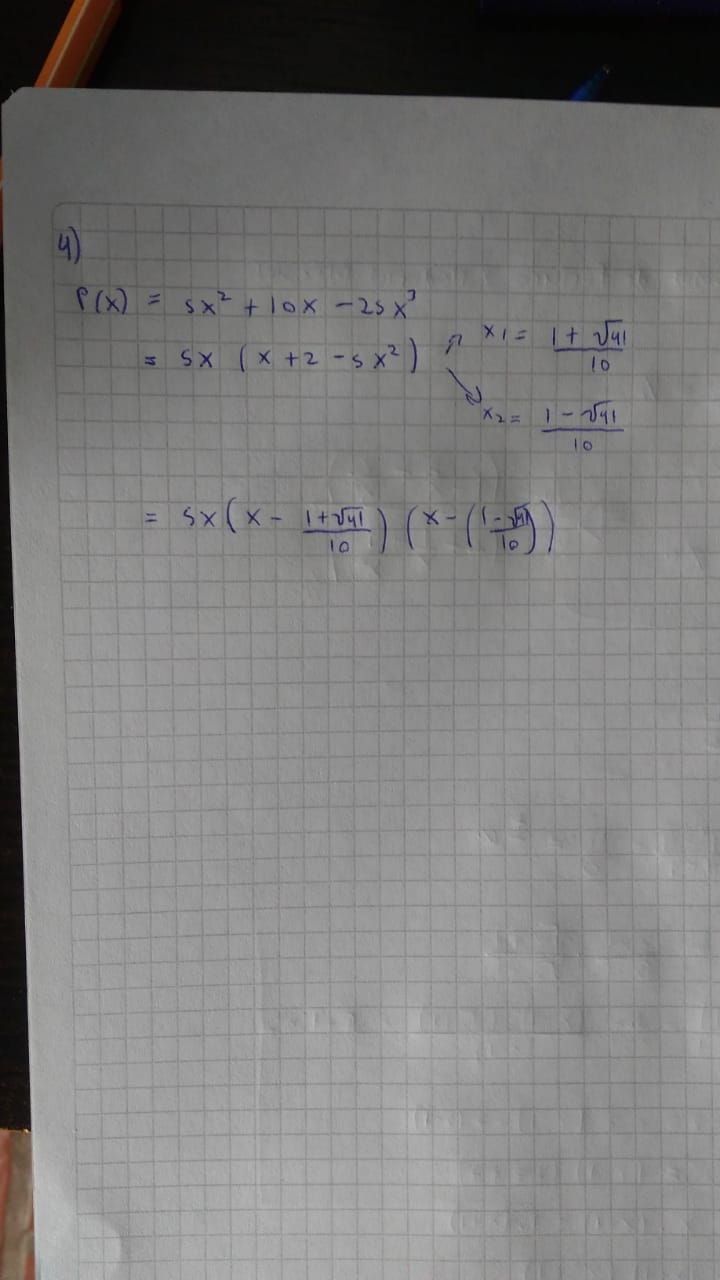 4)
P(x) = 5x² + 10x - 25x³
= 5x (x + 2 - 5x²) ↗ x₁ = (1 + √41)/10
↘ x₂ = (1 - √41)/10
= 5x (x - (1+√41)/10) (x - ((1-√41)/10))